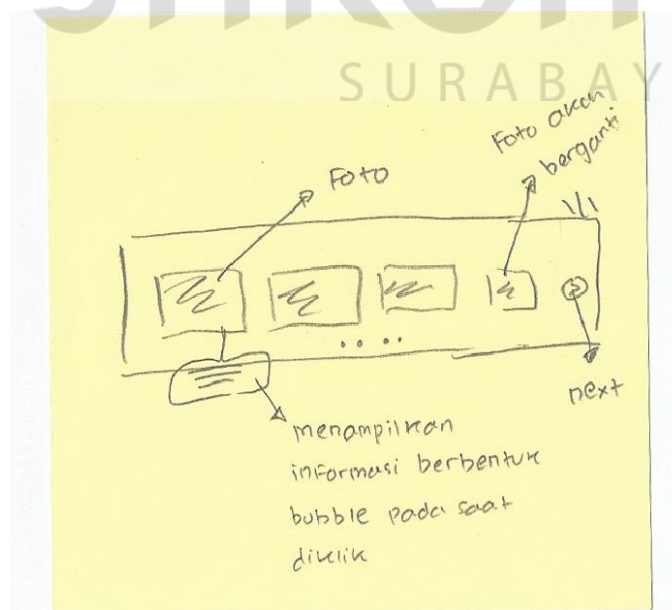 SURABAY
Foto akan
berganti
Foto
next
menampilkan
informasi berbentuk
bubble pada saat
diklik